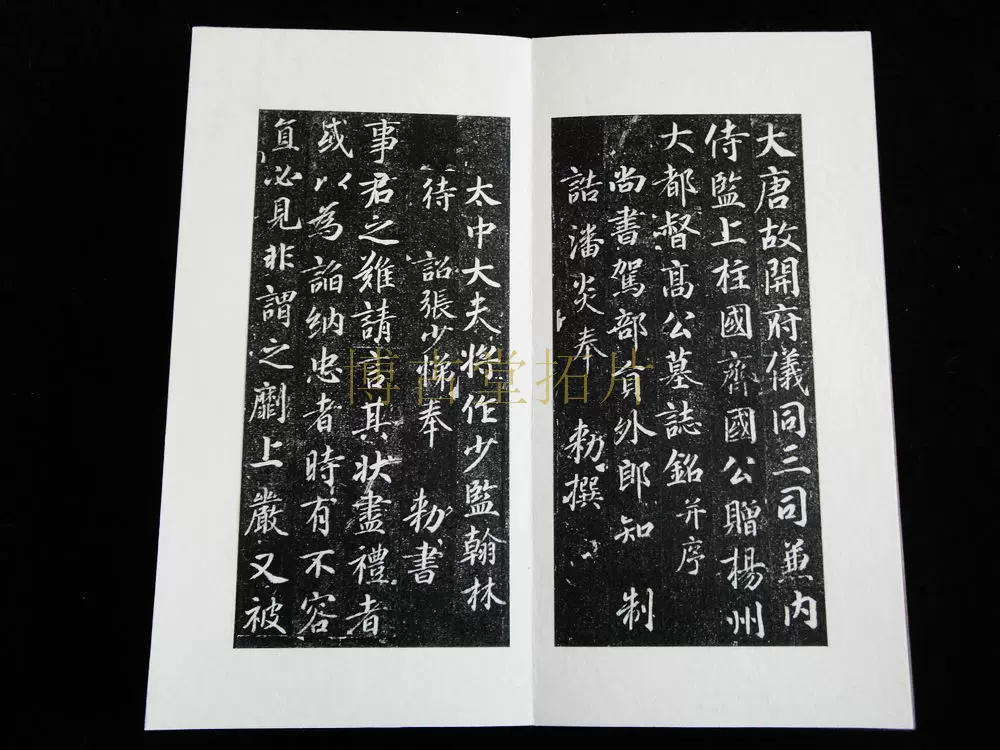 大唐故開府儀同三司兼內
侍監上柱國齊國公贈楊州
大都督髙公墓誌銘并序
尚書駕部員外郎知制
誥潘炎奉勑撰
太中大夫將作少監翰林
待詔張少悌奉勑書
事君之難請言其狀盡禮者
或以為諂納忠者時有不容
直必見非謂之劘上嚴又被
博古堂拓片